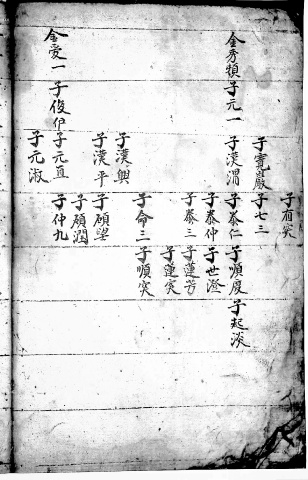 子有突
子寶巖 子七三
金秀 子元一 子漢渭 子泰仁 子順度 子起淡
子泰仲 子世澄
子泰三 子蓮芳
子蓮突
子命三 子順突
子漢興
子漢平 子碩望
子碩潤
金愛一 子俊伊 子元直 子仲九
子元淑